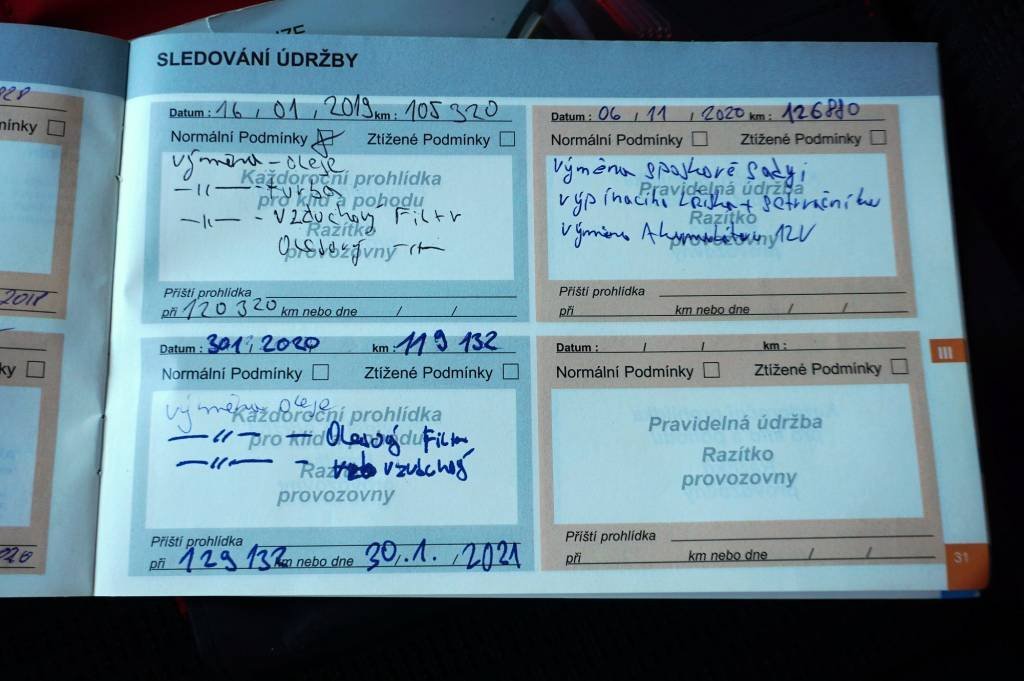 SLEDOVÁNÍ ÚDRŽBY
mínky
2018
ky
Datum : 16 , 01 , 2019 km : 105 320
Normální Podmínky Ztížené Podmínky
Každoroční prohlídka
pro klid a pohodu
Razítko
provozovny
výměna - oleje
—ıı— - turba
—ıı— - Vzduchový Filtr
Olejový —ıı—
Příští prohlídka
při 120 320 km nebo dne / /
Datum : 06 , 11 , 2020 km : 126880
Normální Podmínky Ztížené Podmínky
Pravidelná údržba
Razítko
provozovny
výměna spojkové sady i
vypínacího + setrvačníku
výměna Akumulátoru 12V
Příští prohlídka
při km nebo dne / /
Datum : 30 1 2020 km : 119 132
Normální Podmínky Ztížené Podmínky
Každoroční prohlídka
pro klid a pohodu
Razítko
provozovny
výměna oleje
—ıı— — Olejový Filtr
—ıı— - vzduchový
Příští prohlídka
při 129 132 km nebo dne 30. 1. , 2021
Datum : / / km :
Normální Podmínky Ztížené Podmínky
Pravidelná údržba
Razítko
provozovny
Příští prohlídka
při km nebo dne / /
III
31